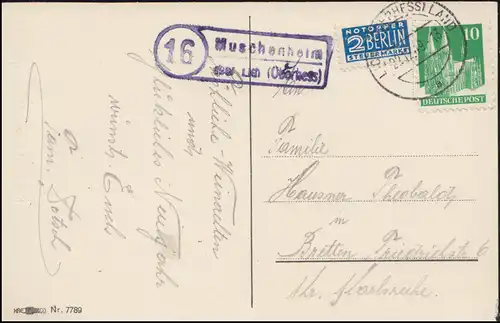 16
Muschenheim
über Lich (Oberhess)
NOTOPFER
2 BERLIN
STEUERMARKE
10
DEUTSCHE POST
LICH (OBERHESS) LAND
a
Fröhliche Weihnachten
und
glückliches Neujahr
wünscht Euch
Fam.
An
Familie
Hausner Theobald
in
Bretten Friedrichstr. 6
Kr. Karlsruhe.
Nr. 7789